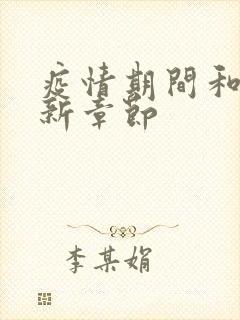 疫情期間和
新章節
李某娟